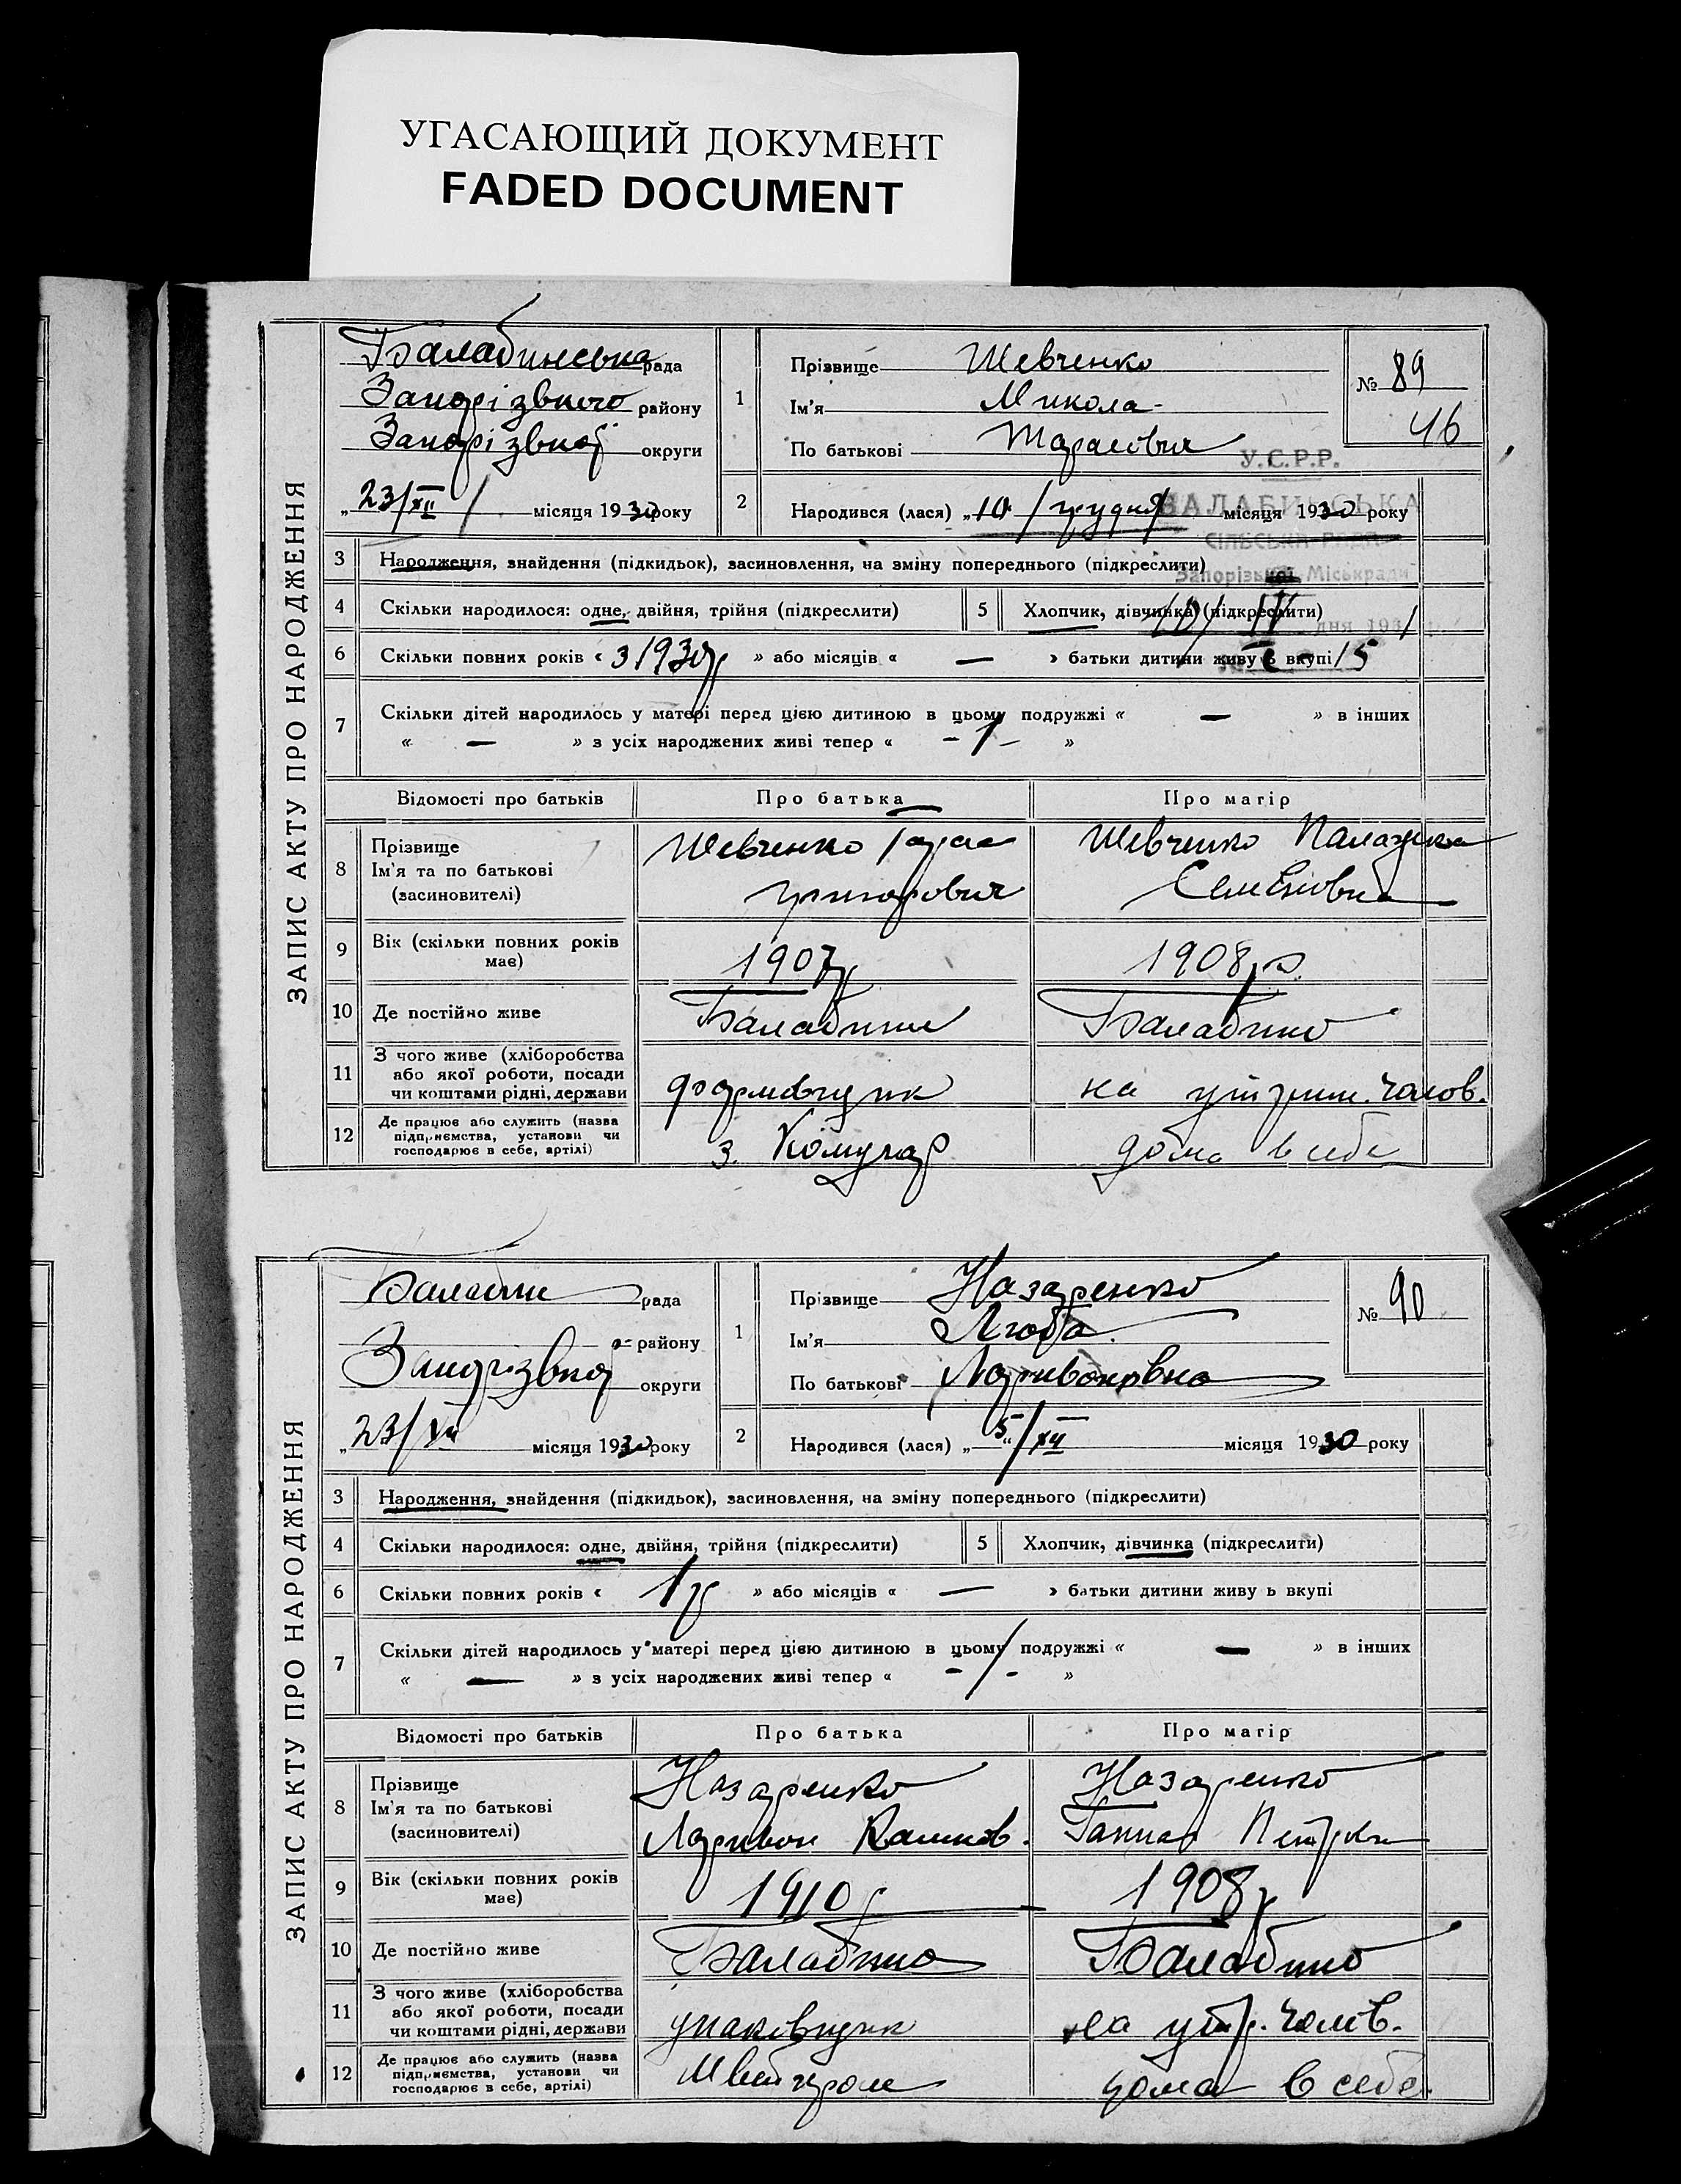 УГАСАЮЩИЙ ДОКУМЕНТ
FADED DOCUMENT
ЗАПИС АКТУ ПРО НАРОДЖЕННЯ
Балабинська рада
Запорізького району
Запорізької округи
„23/XII місяця 1930 року
1
Прізвище Шевченко
Ім'я Микола
По батькові Тарасович
№ 89
46
У.С.Р.Р.
БАЛАБИНСЬКА
СІЛЬСЬКА РАДА
Запорізької Міськради
дня 193
2 Народився (лася) „10 / грудня місяця 1930 року
3 Народження, знайдення (підкидьок), засиновлення, на зміну попереднього (підкреслити)
4 Скільки народилося: одне, двійня, трійня (підкреслити)
5 Хлопчик, дівчинка (підкреслити)
6 Скільки повних років « з 1930р » або місяців « — » батьки дитини живу ь вкупі 15
7 Скільки дітей народилось у матері перед цією дитиною в цьому подружжі « — » в інших
« — » з усіх народжених живі тепер « - 1 - »
Відомості про батьків Про батька Про матір
8 Прізвище
Ім'я та по батькові
(засиновителі)
Шевченко Тарас
Григорович
Шевченко Палажка
Семенівна
9 Вік (скільки повних років має) 1907р 1908р.
10 Де постійно живе Балабине Балабино
11 З чого живе (хліборобства
або якої роботи, посади
чи коштами рідні, держави
формовщик
на утрим. чолов.
12 Де працює або служить (назва
підприємства, установи чи
господарює в себе, артілі)
з. Комунар
дома в себе
ЗАПИС АКТУ ПРО НАРОДЖЕННЯ
Балабин рада
району
Запорізької округи
„23/XII місяця 1930 року
1
Прізвище Назаренко
Ім'я Люба
По батькові Ларивонівна
№ 90
2 Народився (лася) „5“/XII місяця 1930 року
3 Народження, знайдення (підкидьок), засиновлення, на зміну попереднього (підкреслити)
4 Скільки народилося: одне, двійня, трійня (підкреслити)
5 Хлопчик, дівчинка (підкреслити)
6 Скільки повних років « 1р » або місяців « — » батьки дитини живу ь вкупі
7 Скільки дітей народилось у матері перед цією дитиною в цьому подружжі « — » в інших
« — » з усіх народжених живі тепер « - 1 - »
Відомості про батьків Про батька Про матір
8 Прізвище
Ім'я та по батькові
(засиновителі)
Назаренко
Ларивон
Назаренко
Ганна Петрівн
9 Вік (скільки повних років має) 1910р 1908р
10 Де постійно живе Балабино Балабино
11 З чого живе (хліборобства
або якої роботи, посади
чи коштами рідні, держави
упаковщик
на утр. чолов.
12 Де працює або служить (назва
підприємства, установи чи
господарює в себе, артілі)
дома в себе.